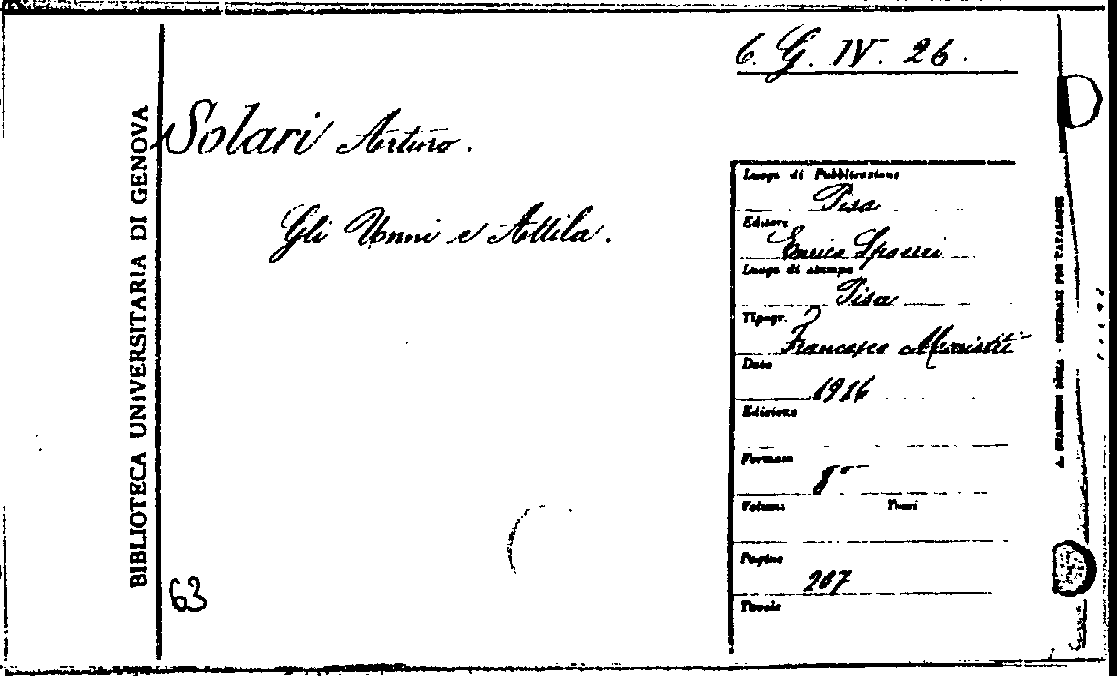 6. G. IV. 26.
BIBLIOTECA UNIVERSITARIA DI GENOVA
Solari Arturo.
Gli Unni e Attila.
Luogo di Pubblicazione
Pisa
Editore
Enrico Spoerri
Luogo di stampa
Pisa
Tipogr.
Francesco Mariotti
Data
1916
Edizione
Formato
8º
Volumi Tomi
Pagine
207
Tavole
63